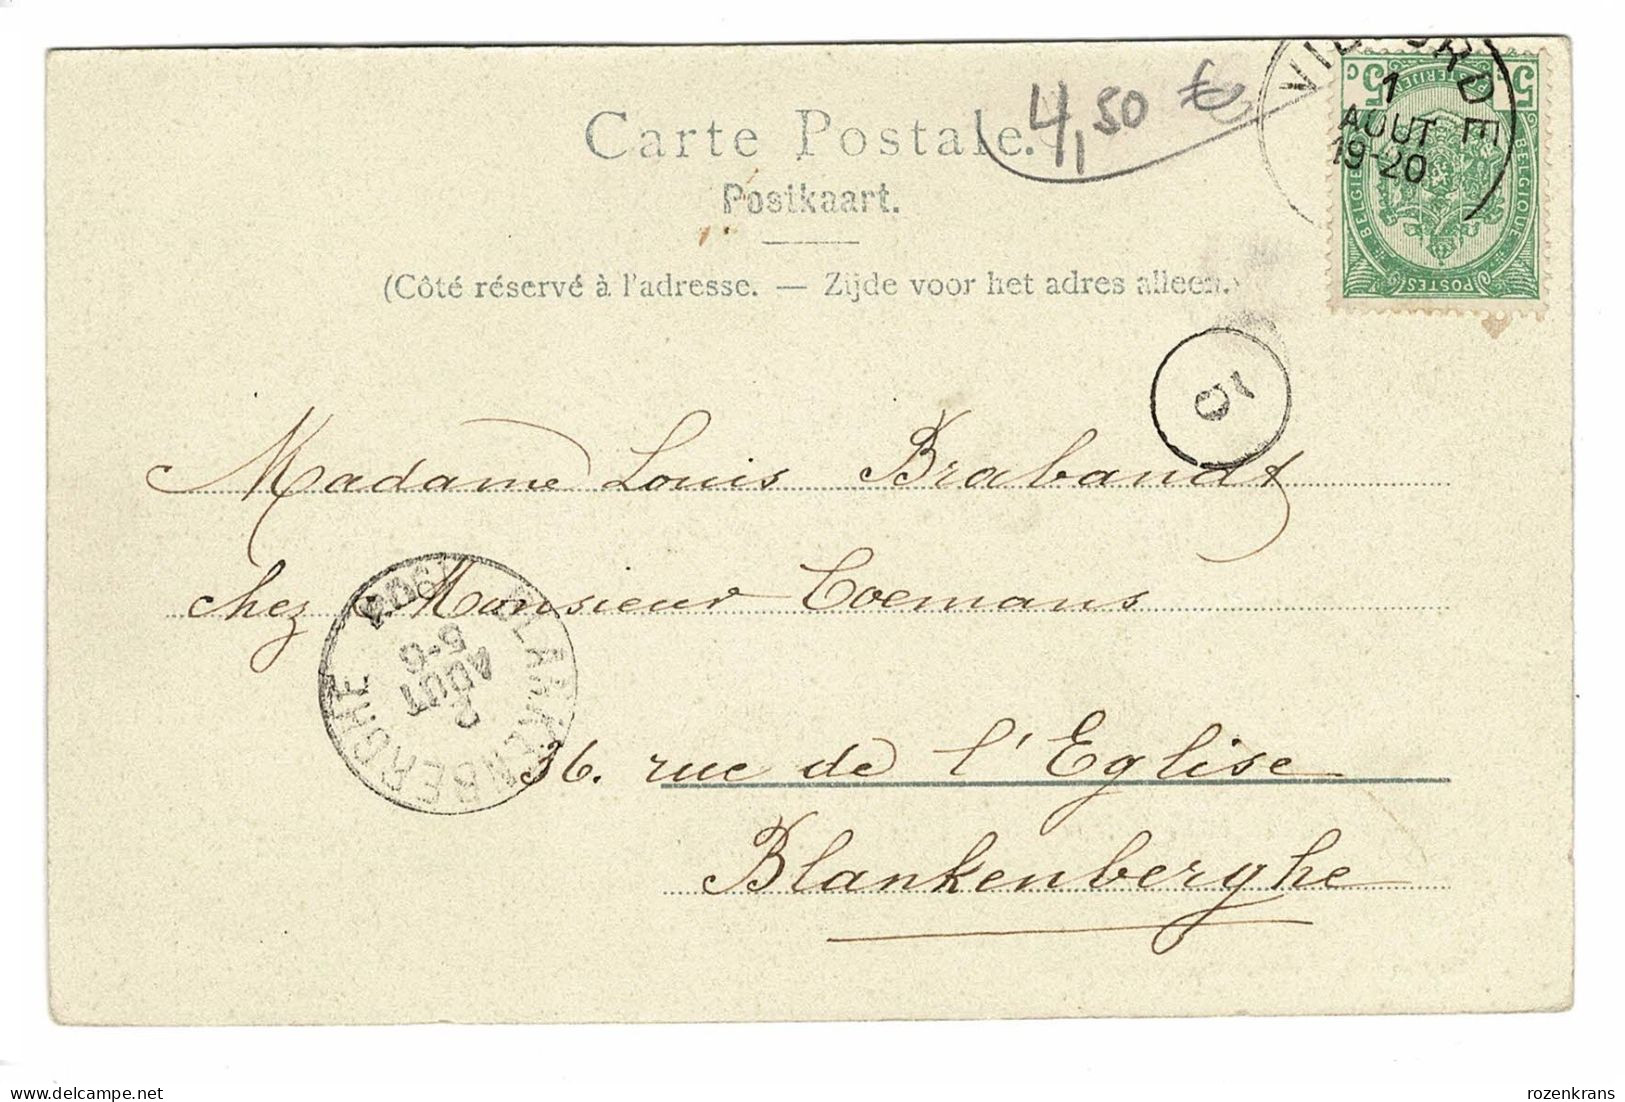 Carte Postale.
4,50 €
Postkaart.
(Côté réservé à l'adresse. — Zijde voor het adres alleen.)
VILVORDE
1
AOUT
19-20
5 C
5 C
POSTERIJEN
BELGIQUE
BELGIË
POSTES
10
Madame Louis Brabandt
chez Monsieur Coemans
36. rue de l'Eglise
Blankenberghe
BLANKENBERGHE
5-6
AOUT
2
delcampe.net
rozenkrans